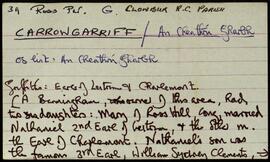 39 Ross Par. G. CLONBUR R.C. PARISH
CARROWGARRIFF / An Cheathrú Gharbh
OS list: An Cheathrú Gharbh
Griffiths: Earls of Leitrim & Charlemont.
(A Birmingham, of this area, had
two daughters: Mary of Ross Hill Cong, married
Nathaniel 2nd Earl of Leitrim & the other m.
the Earl of Charlemont. Nathaniel's son was
the famous 3rd Earl, William Sydney Clements